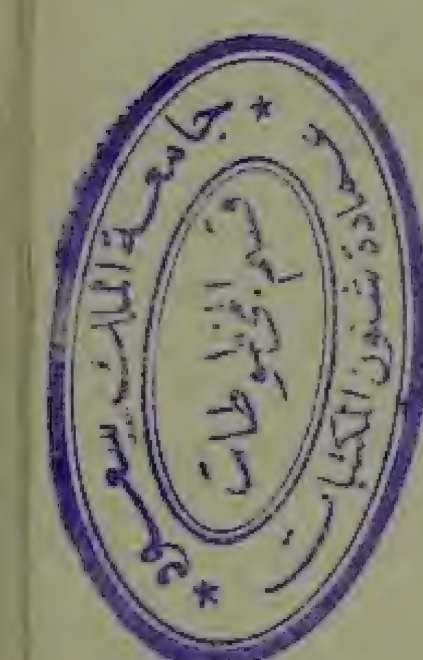 جامعة الملك سعود
عمادة شؤون المكتبات
قسم المخطوطات